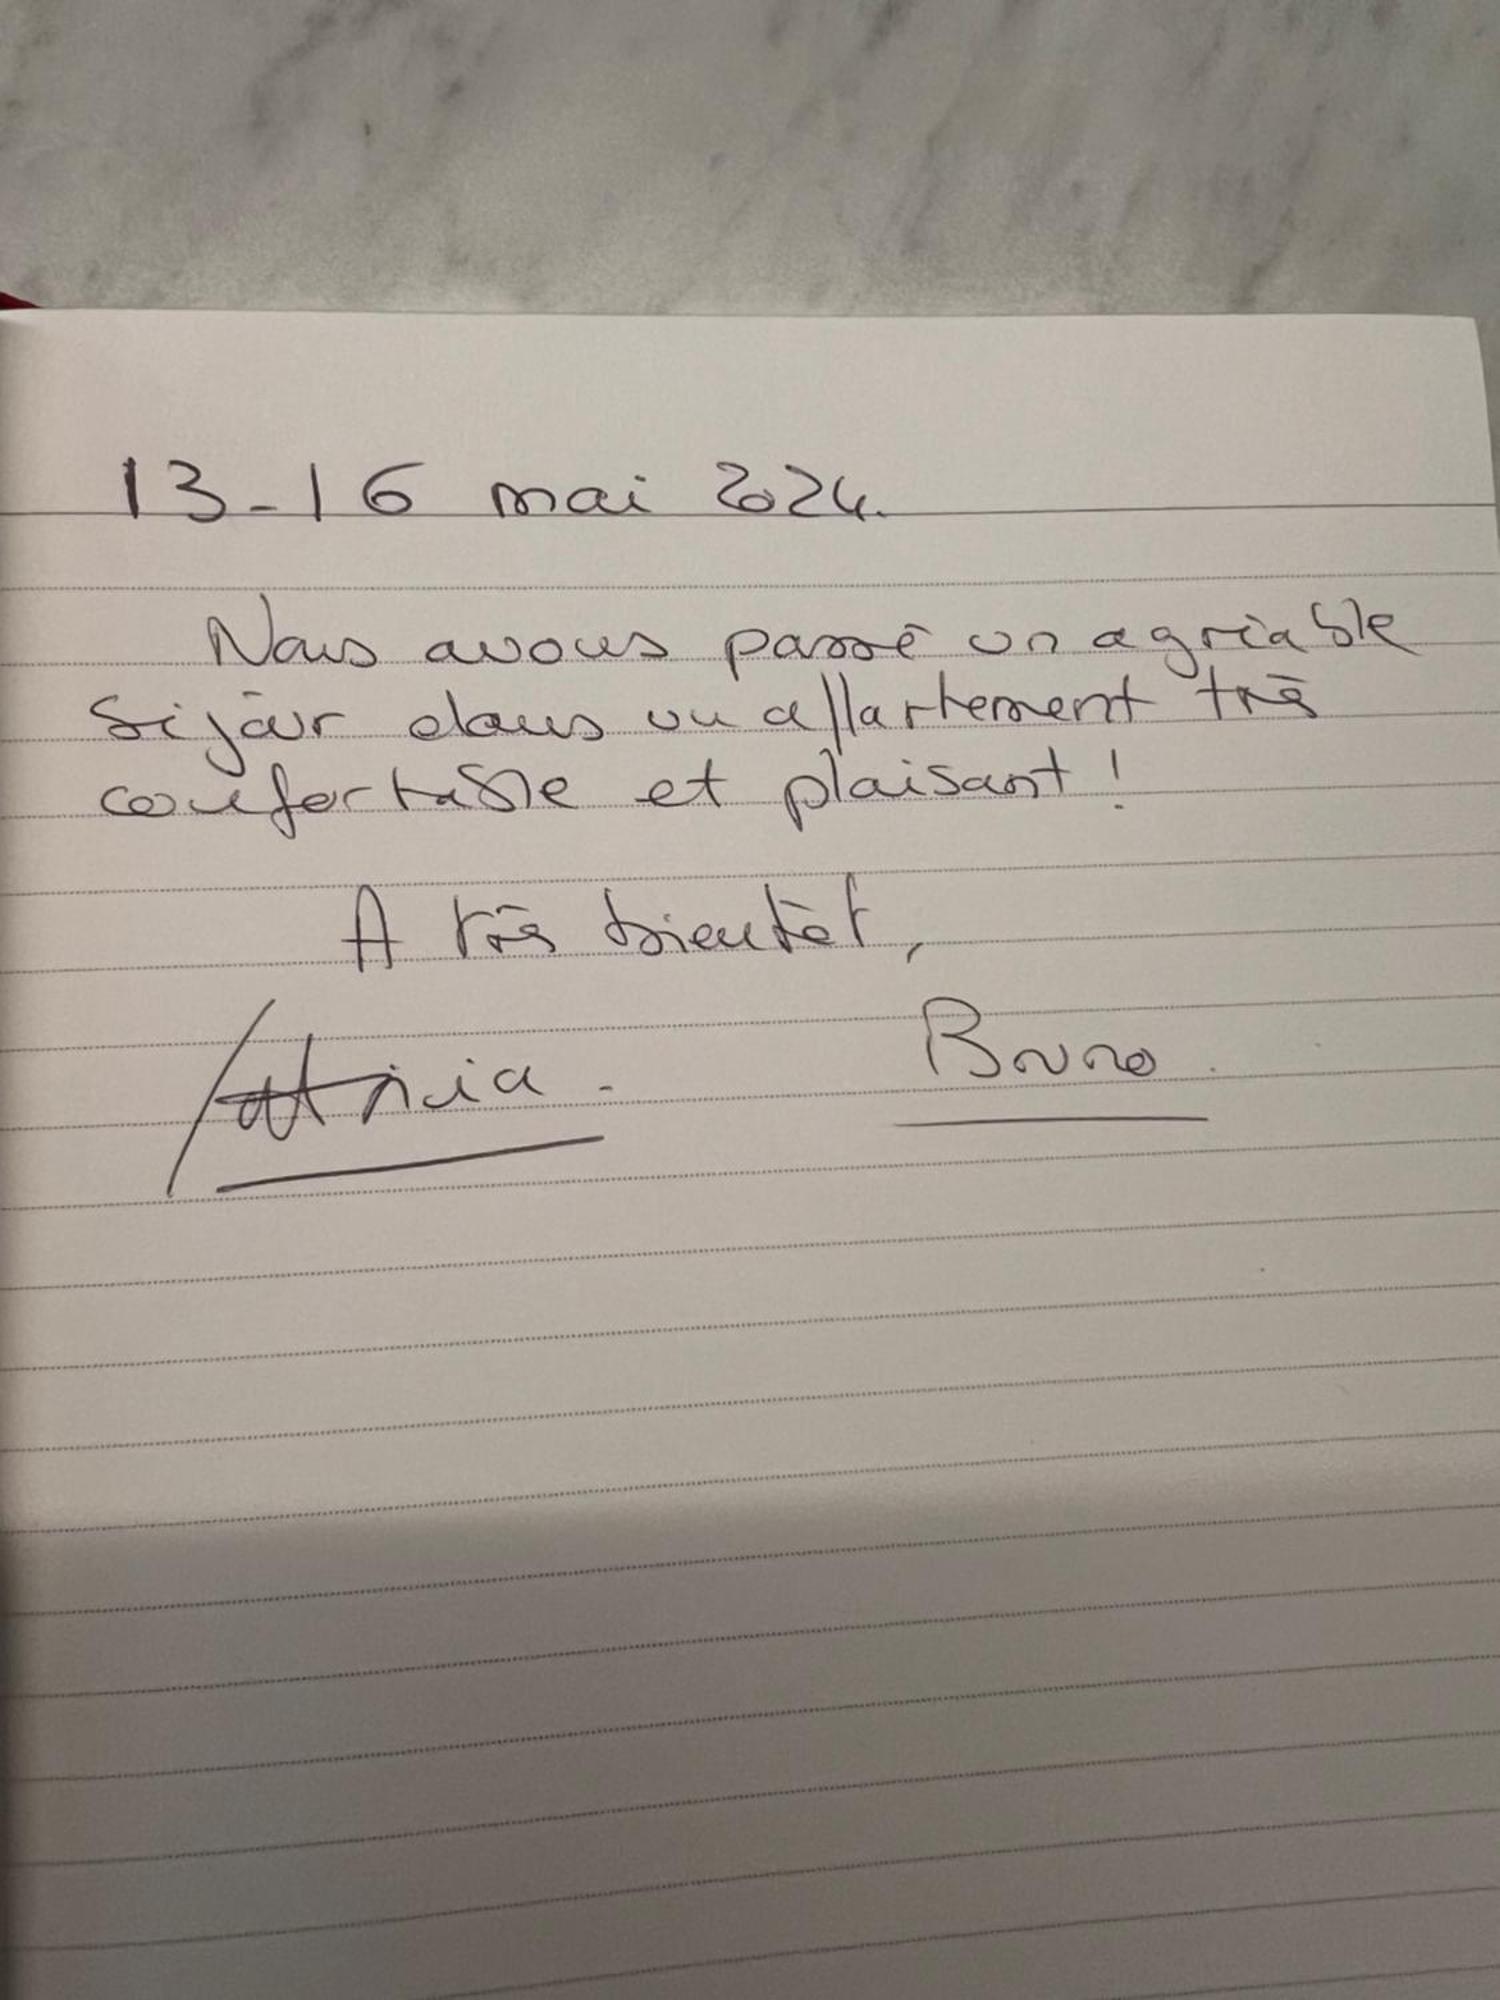 13-16 mai 2024.
Nous avons passé un agréable
séjour dans un appartement très
confortable et plaisant !
A très bientôt,
Patricia. Bruno.